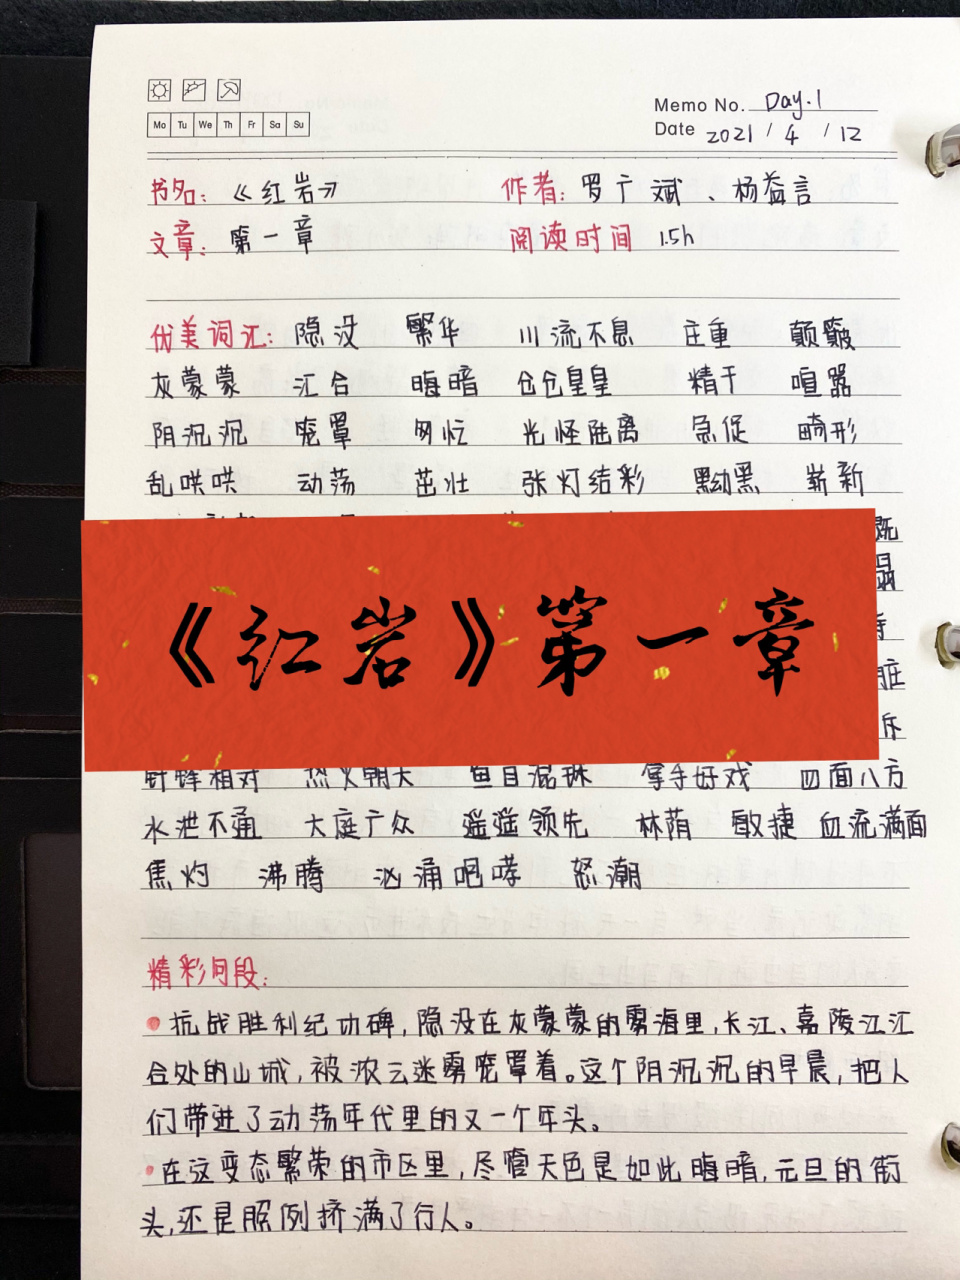 Mo Tu We Th Fr Sa Su
Memo No. Day.1
Date 2021 / 4 / 12
书名:《红岩》 作者:罗广斌、杨益言
文章:第一章 阅读时间 1.5h
优美词汇:隐没 繁华 川流不息 庄重 颠簸
灰蒙蒙 汇合 晦暗 仓仓皇皇 精干 喧嚣
阴沉沉 笼罩 匆忙 光怪陆离 急促 畸形
乱哄哄 动荡 茁壮 张灯结彩 黝黑 崭新
《红岩》第一章
针锋相对 热火朝天 鱼目混珠 拿手好戏 四面八方
水泄不通 大庭广众 遥遥领先 林荫 敏捷 血流满面
焦灼 沸腾 汹涌咆哮 怒潮
精彩句段:
抗战胜利纪功碑,隐没在灰蒙蒙的雾海里,长江、嘉陵江汇
合处的山城,被浓云迷雾笼罩着。这个阴沉沉的早晨,把人
们带进了动荡年代里的又一个年头。
在这变态繁荣的市区里,尽管天色是如此晦暗,元旦的街
头,还是照例挤满了行人。